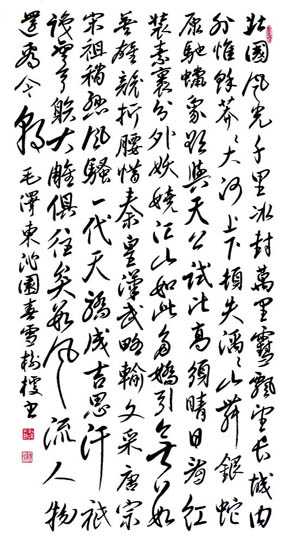 北國風光千里冰封萬里雪飄望長城内
外惟餘莽〻大河上下頓失滔〻山舞銀蛇
原馳蠟象欲與天公試比高須晴日看紅
装素裹分外妖嬈江山如此多嬌引無數
英雄競折腰惜秦皇漢武略輸文采唐宗
宋祖稍遜風騷一代天驕成吉思汗祇
識彎弓射大雕俱往矣數風流人物
還看今朝 毛澤東沁園春雪